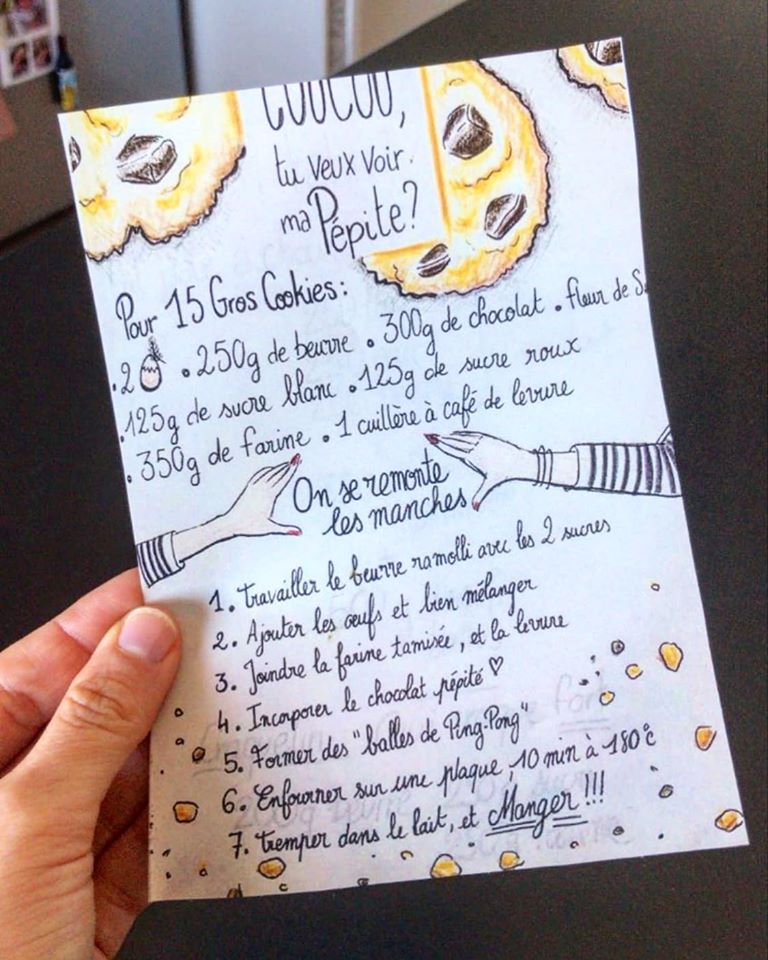 COUCOU,
tu veux voir
ma Pépite?
Pour 15 Gros Cookies:
. 2 . 250g de beurre . 300g de chocolat . fleur de S
. 125g de sucre blanc . 125g de sucre roux
. 350g de farine . 1 cuillère à café de levure
On se remonte
les manches
1. travailler le beurre ramolli avec les 2 sucres
2. Ajouter les œufs et bien mélanger
3. Joindre la farine tamisée, et la levure
4. Incorporer le chocolat pépité ♡
5. Former des "balles de Ping-Pong"
6. Enfourner sur une plaque, 10 min à 180°c
7. tremper dans le lait, et Manger !!!